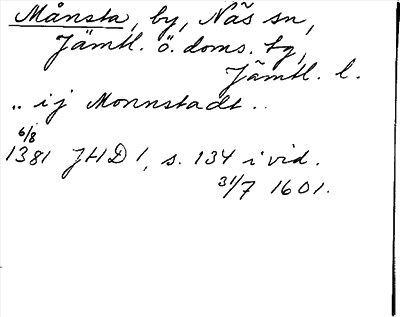 Månsta, by, Näs sn,
Jämtl. ö. doms. tg,
Jämtl. l.
.. ij Monnstadt ..
6/8
1381 JHD 1, s. 134 i vid.
31/7 1601.